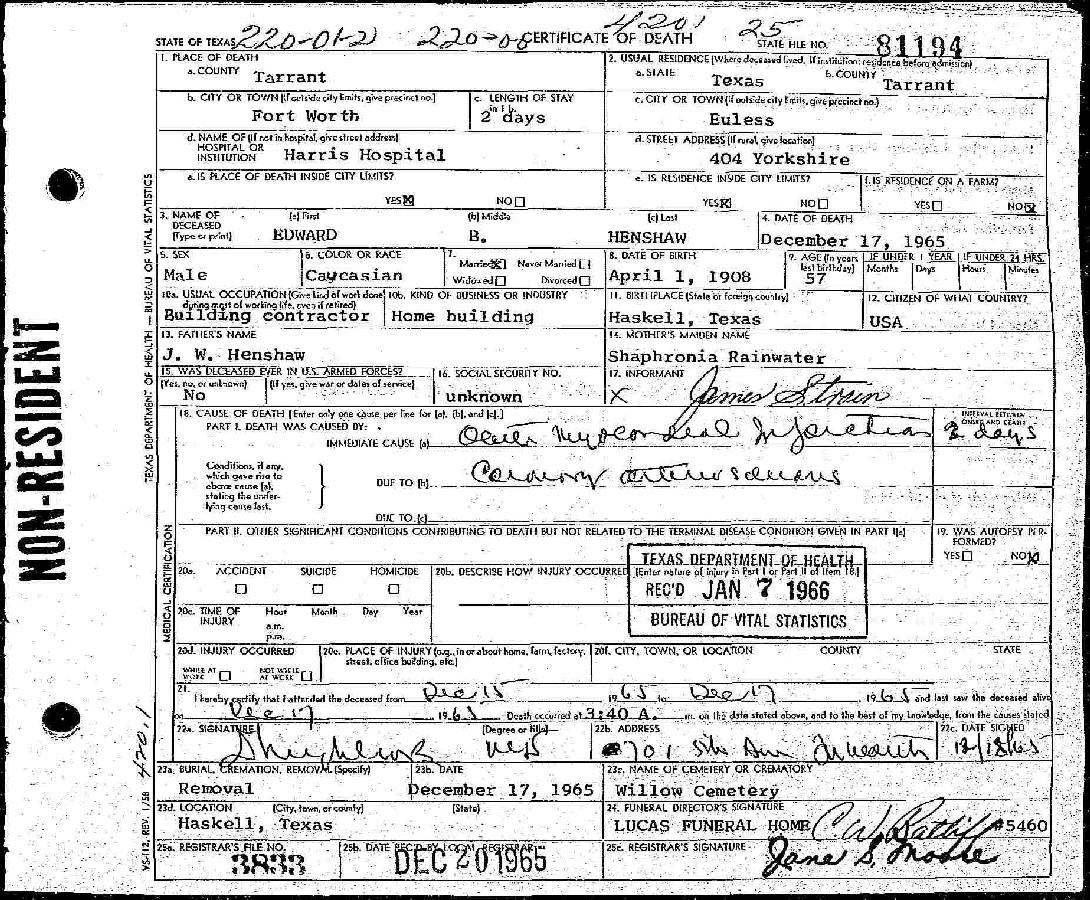 4201 25
STATE OF TEXAS 220-01-21 220-00 CERTIFICATE OF DEATH STATE FILE NO. 81194
1. PLACE OF DEATH
a. COUNTY Tarrant
2. USUAL RESIDENCE (Where deceased lived. If institution: residence before admission)
a. STATE Texas b. COUNTY Tarrant
b. CITY OR TOWN (If outside city limits, give precinct no.) Fort Worth
c. LENGTH OF STAY in 1b. 2 days
c. CITY OR TOWN (If outside city limits, give precinct no.) Euless
d. NAME OF (If not in hospital, give street address) HOSPITAL OR INSTITUTION Harris Hospital
d. STREET ADDRESS (If rural, give location) 404 Yorkshire
e. IS PLACE OF DEATH INSIDE CITY LIMITS? YES☒ NO☐
e. IS RESIDENCE INSIDE CITY LIMITS? YES☒ NO☐
f. IS RESIDENCE ON A FARM? YES☐ NO☒
3. NAME OF DECEASED (Type or print) (a) First EDWARD (b) Middle B. (c) Last HENSHAW
4. DATE OF DEATH December 17, 1965
5. SEX Male
6. COLOR OR RACE Caucasian
7. Married☒ Never Married☐ Widowed☐ Divorced☐
8. DATE OF BIRTH April 1, 1908
9. AGE (In years last birthday) 57
IF UNDER 1 YEAR Months Days
IF UNDER 24 HRS. Hours Minutes
10a. USUAL OCCUPATION (Give kind of work done during most of working life, even if retired) Building contractor
10b. KIND OF BUSINESS OR INDUSTRY Home building
11. BIRTHPLACE (State or foreign country) Haskell, Texas
12. CITIZEN OF WHAT COUNTRY? USA
13. FATHER'S NAME J. W. Henshaw
14. MOTHER'S MAIDEN NAME Shaphronia Rainwater
15. WAS DECEASED EVER IN U.S. ARMED FORCES? (Yes, no, or unknown) No (If yes, give war or dates of service)
16. SOCIAL SECURITY NO. unknown
17. INFORMANT X James Strain
18. CAUSE OF DEATH [Enter only one cause per line for (a), (b), and (c).]
PART I. DEATH WAS CAUSED BY:
IMMEDIATE CAUSE (a) Acute Myocardial Infarction
INTERVAL BETWEEN ONSET AND DEATH 2 days
Conditions, if any, which gave rise to above cause (a), stating the underlying cause last.
DUE TO (b) Coronary
DUE TO (c)
PART II. OTHER SIGNIFICANT CONDITIONS CONTRIBUTING TO DEATH BUT NOT RELATED TO THE TERMINAL DISEASE CONDITION GIVEN IN PART I(a)
19. WAS AUTOPSY PERFORMED? YES☐ NO☒
20a. ACCIDENT ☐ SUICIDE ☐ HOMICIDE ☐
20b. DESCRIBE HOW INJURY OCCURRED (Enter nature of injury in Part I or Part II of Item 18.)
TEXAS DEPARTMENT OF HEALTH
REC'D JAN 7 1966
BUREAU OF VITAL STATISTICS
20c. TIME OF INJURY Hour a.m. p.m. Month Day Year
20d. INJURY OCCURRED WHILE AT WORK ☐ NOT WHILE AT WORK ☐
20e. PLACE OF INJURY (e.g., in or about home, farm, factory, street, office building, etc.)
20f. CITY, TOWN, OR LOCATION COUNTY STATE
21. I hereby certify that I attended the deceased from Dec 15 1965 to Dec 17 1965 and last saw the deceased alive
on Dec 17 1965 Death occurred at 3:40 A. m. on the date stated above, and to the best of my knowledge, from the causes stated
22a. SIGNATURE (Degree or title) MD
22b. ADDRESS 701 5th Ave
22c. DATE SIGNED 12/18/65
23a. BURIAL, CREMATION, REMOVAL (Specify) Removal
23b. DATE December 17, 1965
23c. NAME OF CEMETERY OR CREMATORY Willow Cemetery
23d. LOCATION (City, town, or county) (State) Haskell, Texas
24. FUNERAL DIRECTOR'S SIGNATURE LUCAS FUNERAL HOME C W Ratliff #5460
25a. REGISTRAR'S FILE NO. 3833
25b. DATE REC'D BY LOCAL REGISTRAR DEC 20 1965
25c. REGISTRAR'S SIGNATURE Jane S. Moore
NON-RESIDENT
TEXAS DEPARTMENT OF HEALTH — BUREAU OF VITAL STATISTICS
MEDICAL CERTIFICATION
VS-112, REV. 1/58
4201